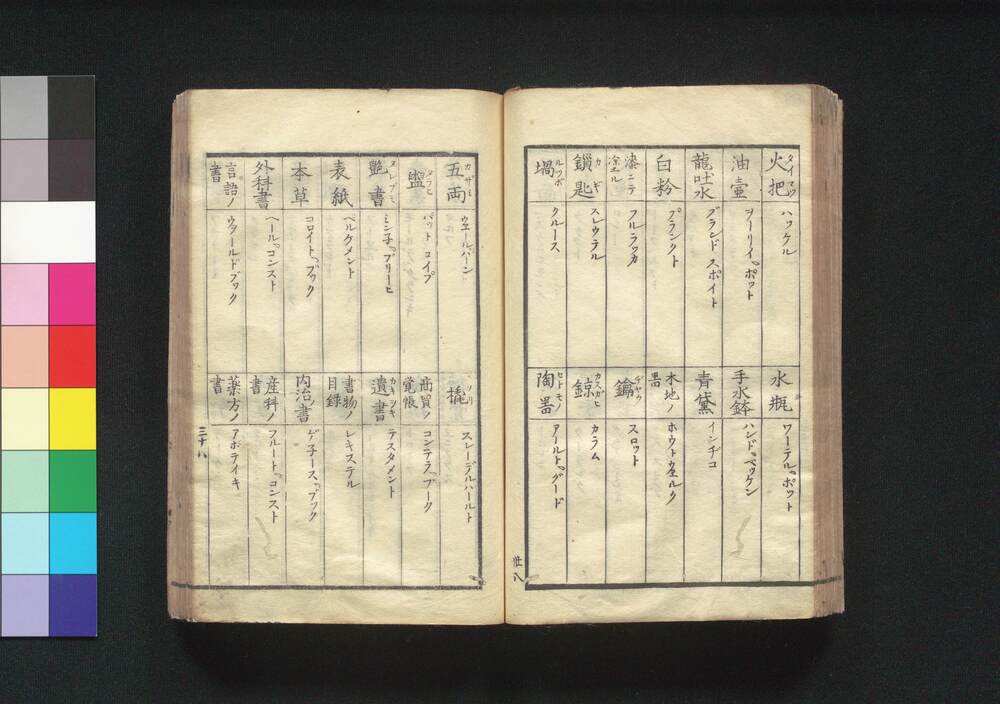 火把
タイマツ
ハツケル
油壷
ヲーリイ。ポット
龍吐水
ブランド スポイト
白粉
ブランクト
漆ニテ
塗ル
フルラッカ
鎖匙
カギ
スレウテル
堝
ルツボ
クルース
水瓶
ワーテル。ポット
手水鉢
ハンド。ベッケン
青黛
インヂコ
木地ノ
器
ホウトウエルク
鑰
ヂヤウ
スロット
鍄
カスガヒ
カラム
陶器
セトモノ
アールト。グード
卅八
五両
カザミ
ウエールハーン
盥
タラヒ
バット コイプ
艶書
ヌレブミ
ミン子。ブリーヒ
表紙
ペルクメント
本草
コロイト。ブック
外科書
ヘール。コンスト
言語ノ
書
ウヲールドブック
橇
ソリ
スレーデルハールト
商買ノ
覚帳
コンテラ。ブーク
遺書
カキヲキ
テスタメント
書物ノ
目録
レキステル
内治ノ書
ゲ子ース。ブック
産科ノ
書
フルート。コンスト
薬方ノ
書
アポテイキ
三十八